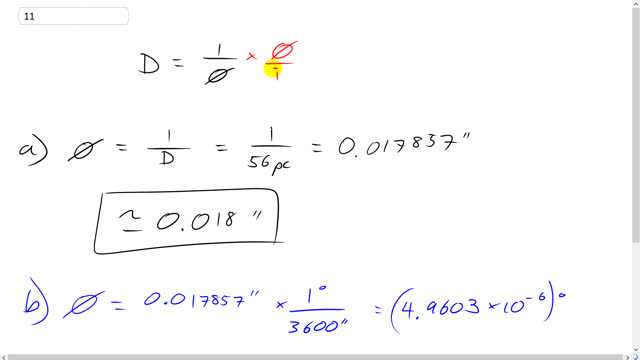 11
D = 1/∅ × ∅/1
a) ∅ = 1/D = 1/56pc = 0.017837"
≃ 0.018"
b) ∅ = 0.017857" × 1°/3600" = (4.9603 × 10⁻⁶)°